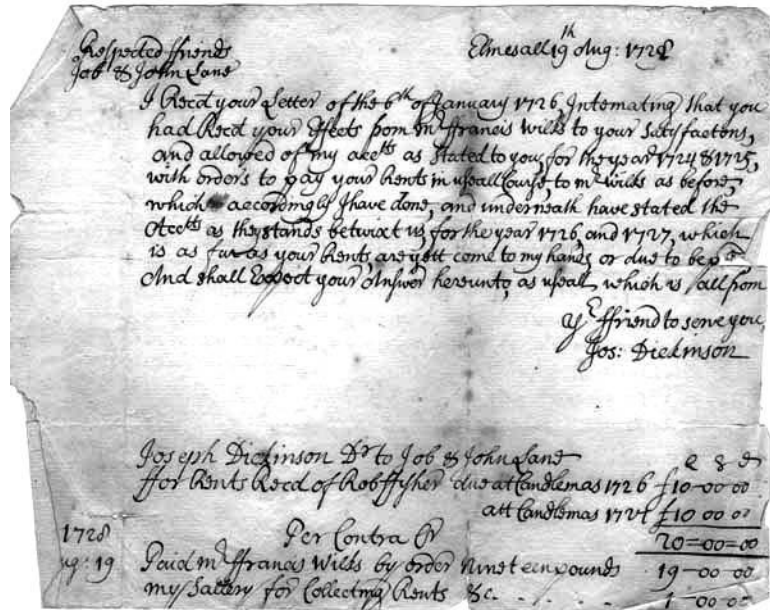 Elmesall 19th Aug: 1728
Respected ffriends
Job & John Lane
I Recd your Letter of the 6th of January 1726, Intemating that you
had Recd your Effects from mr ffrancis Wilks to your Satisfactons,
and allowed of my acctts as Stated to you, for the year 1724 & 1725,
with orders to pay your Rents in useall Course to mr Wilks as before,
which accordingly I have done, and underneath have stated the
Acctts as they stands betwixt us for the year 1726, and 1727, which
is as far as your Rents are yett come to my hand, or due to be pd
And shall Expect your Answer hereunto, as useall, which is all from
yr ffriend to serve you,
Jos: Dickinson
Joseph Dickinson Dr to Job & John Lane £ s d
ffor Rents Recd of Rob ffisher due att Candlemas 1726 £10-00 00
att Candlemas 1727 £10 00 00
1728 Per Contra Cr 20=00=00
ug: 19 Paid mr ffrancis Wilks by order Nineteen pounds 19-00 00
my Sallery for Collecting Rents &c. . . . . 1-00-00